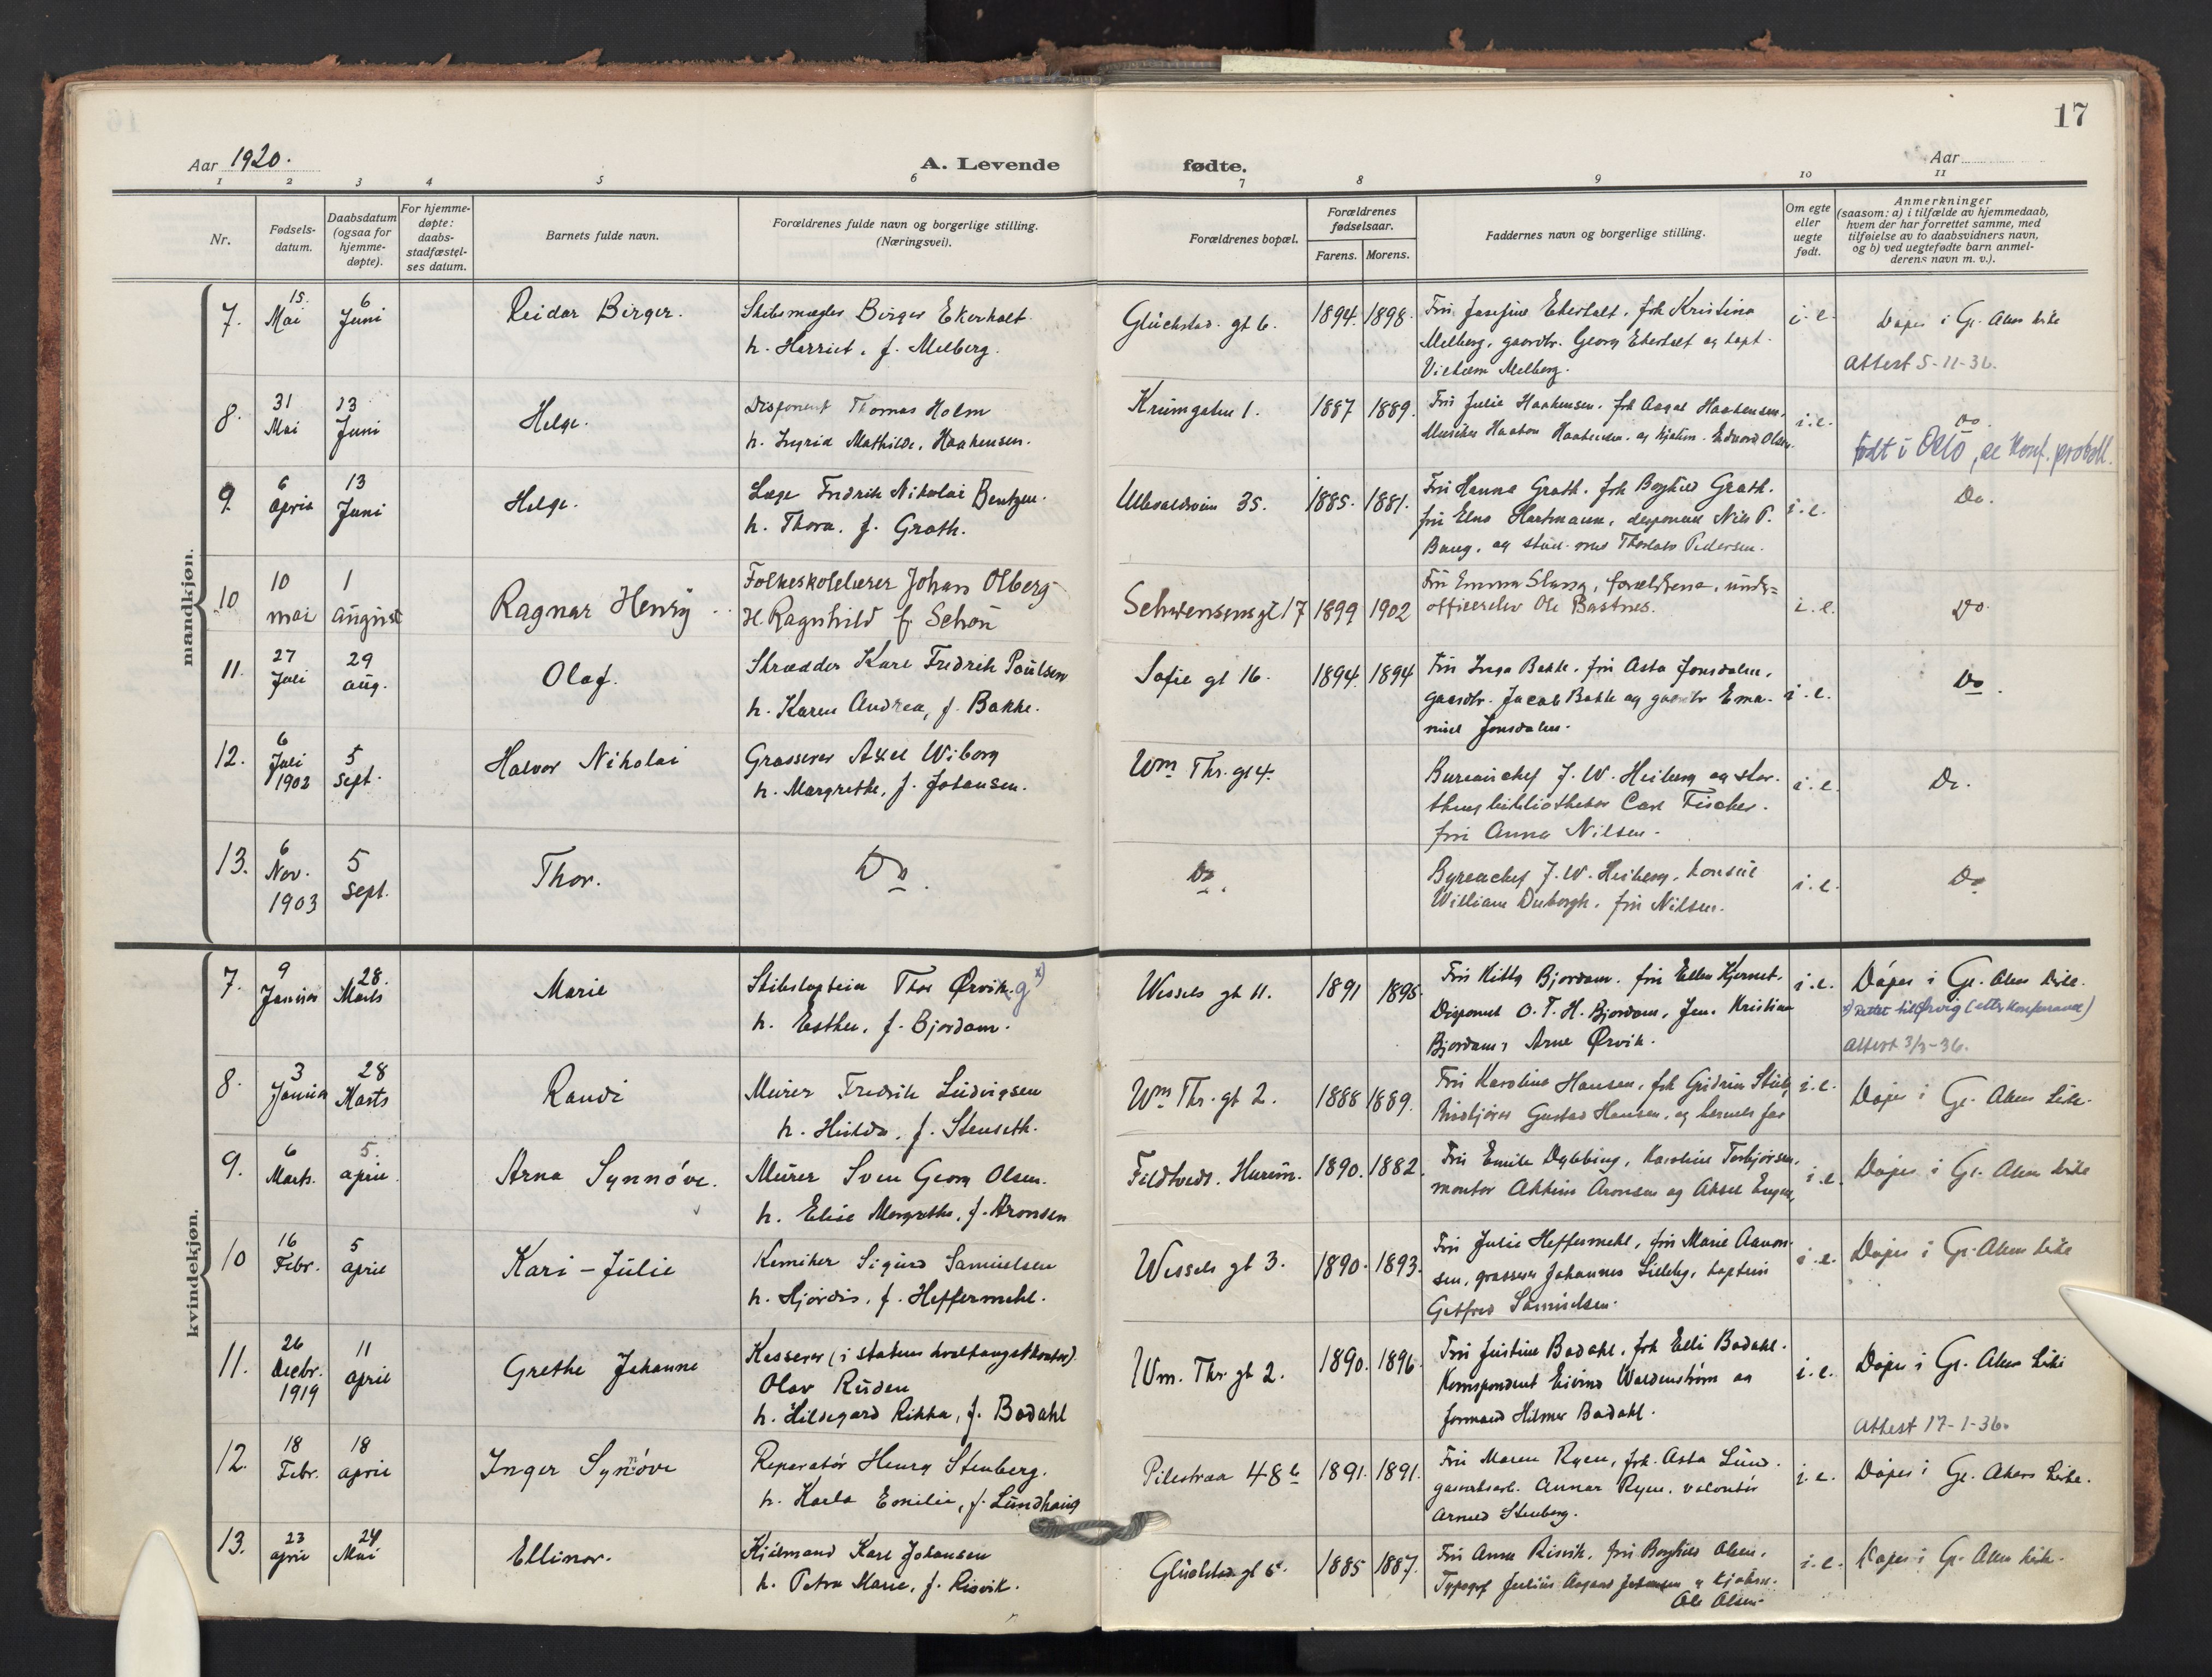 17
Aar 1920.
A. Levende
fødte.
Aar
1 2 3 4 5 6 7 8 9 10 11
Nr.
Fødsels-
datum.
Daabsdatum
(ogsaa for
hjemme-
døpte).
For hjemme-
døpte:
daabs-
stadfæstel-
ses datum.
Barnets fulde navn.
Forældrenes fulde navn og borgerlige stilling.
(Næringsvei).
Forældrenes bopæl.
Forældrenes
fødselsaar.
Farens. Morens.
Faddernes navn og borgerlige stilling.
Om egte
eller
uegte
født.
Anmerkninger
(saasom: a) i tilfælde av hjemmedaab,
hvem der har forrettet samme, med
tilføielse av to daabsvidners navn,
og b) ved uegtefødte barn anmel-
derens navn m. v.).
mandkjøn.
7.
15.
Mai
6
Juni
Reidar Birger.
Skibsmægler Birger Ekerholt
h. Harriet, f. Melberg.
Glückstad. gt 6.
1894. 1898.
Fru Josefine Ekerholt, frk Kristina
Melberg, gaardbr. Georg Ekerholt og kapt.
Vilhelm Melberg.
i. e.
Døpt i Gl. Akers kirke
Attest 5-11-36.
8.
31
Mai
13
Juni
Helge.
Disponent Thomas Holm
h. Ingrid Mathilde, Haakensen.
Krumgaten 1.
1887 1889.
Fru Julie Haakensen, frk Aagot Haakensen,
Musiker Haakon Haakensen og Edvard Olsen.
i. e.
Do.
født i Oslo, se konf. protokll.
9.
6
April
13
Juni
Helge.
Læge Fredrik Nikolai Bentzen.
h. Thora, f. Grath.
Ullevaldsveien 35.
1885. 1881.
Fru Hanna Grath, frk Borghild Grath.
fru Elna Hartmann, disponent Nils P.
Baug, og stud. med Thorleiv Pedersen.
i. e.
Do.
10
10
mai
1
august
Ragnar Henry
Folkeskolelærer Johan Olberg
H. Ragnhild f. Schøn
Schwensensgt 17
1899 1902
Fru Emma Slang, forældrene, under=
officerelev Ole Bastnes.
i. e.
Do
11.
27
Juli
29
aug.
Olaf.
Skrædder Karl Fredrik Poulsen
h. Karen Andrea, f. Bakke.
Sofie gt 16.
1894. 1894
Fru Inga Bakke, fru Asta Jonsdalen,
gaardbr. Jacob Bakke og gaardbr Ema-
nuel Jonsdalen.
i. e.
Do.
12.
6
Juli
1902
5
Sept.
Halvor Nikolai
Grosserer Axel Wiborg
h. Margrethe, f. Johansen.
Wm Thr. gt 4.
Bureauchef J. W. Heiberg og stor-
thingsbibliothekar Carl Fischer.
fru Anna Nilsen.
i. e.
Do.
13.
6
Nov.
1903
5
Sept.
Thor.
Do.
Do.
Byreachef J. W. Heiberg, konsul
William Duborgh, fru Nilsen.
i. e.
Do
kvindekjøn.
7.
9
Januar
28.
Marts
Marie
Skibskaptein Thor Ørvik.g x)
h. Esther, f. Bjordam.
Wessels gt 11.
1891 1895.
Fru Kitty Bjordam, fru Ellen Kjernet.
Disponent O. T. H. Bjordam, Jens Kristian
Bjordam, Arne Ørvik.
i. e.
Døpt i Gl. Akers kirke.
x) Rettet til Ørvig (etter konferanse)
Attest 3/3-36.
8.
3
Januar
28
Marts
Randi
Murer Fredrik Ludvigsen
h. Hilda, f. Stenseth.
Wm Thr. gt 2.
1888 1889.
Fru Karoline Hansen, frk Gudrun
Gustav Hansen, og barnets far
i. e.
Døpt i Gl. Akers kirke.
9.
6
Marts.
5.
April.
Arna Synnöve.
Murer Sven Georg Olsen.
h. Elise Margrethe, f. Aronsen
1890. 1882.
Fru Emilie Karoline Torbjörsen,
montør Aronsen og Aksel
i. e.
Døpt i Gl. Akers kirke
10
16
Febr.
5
April
Kari - Julie
Kemiker Sigurd Samuelsen
h. Hjördis, f. Heffermehl.
Wessels gt 3.
1890. 1893.
Fru Julie Heffermehl, fru Marie Aanon-
sen, grosserer Johannes Lilleby, kaptein
Gotfred Samuelsen.
i. e.
Døpt i Gl. Akers kirke
11.
26
Decbr.
1919
11
April
Grethe Johanne
Kasserer (i statens kvalfangstkontor)
Olav Ruden
h. Hildegard Rikka, f. Badahl
Wm. Thr. gt 2.
1890. 1896.
Fru Justine Badahl, frk Elli Badahl.
Korrespondent Eivind Waldenstrøm og
formand Hilmer Badahl.
i. e.
Døpt i Gl. Akers kirke
Attest 17-1-36.
12.
18
Febr.
18
April
Inger Synnöve
Reparatör Henry Stenberg.
h. Karla Emilie, f. Lundhaug
Pilestræa 48 b
1891. 1891.
Fru Maren Ryen, frk. Asta Lund.
Annar Ryen, volontör
Arnold Stenberg.
i. e.
Døpt i Gl. Akers kirke.
13.
23
April
24
Mai
Ellinor.
Karl Johansen
h. Petra Marie, f. Risvik.
Glückstad. gt 6
1885 1887.
Fru Anna Risvik, fru Borghild Olsen,
Typograf Julius Aagard Johansen og
Ole Olsen
i. e.
Døpt i Gl. Akers kirke.